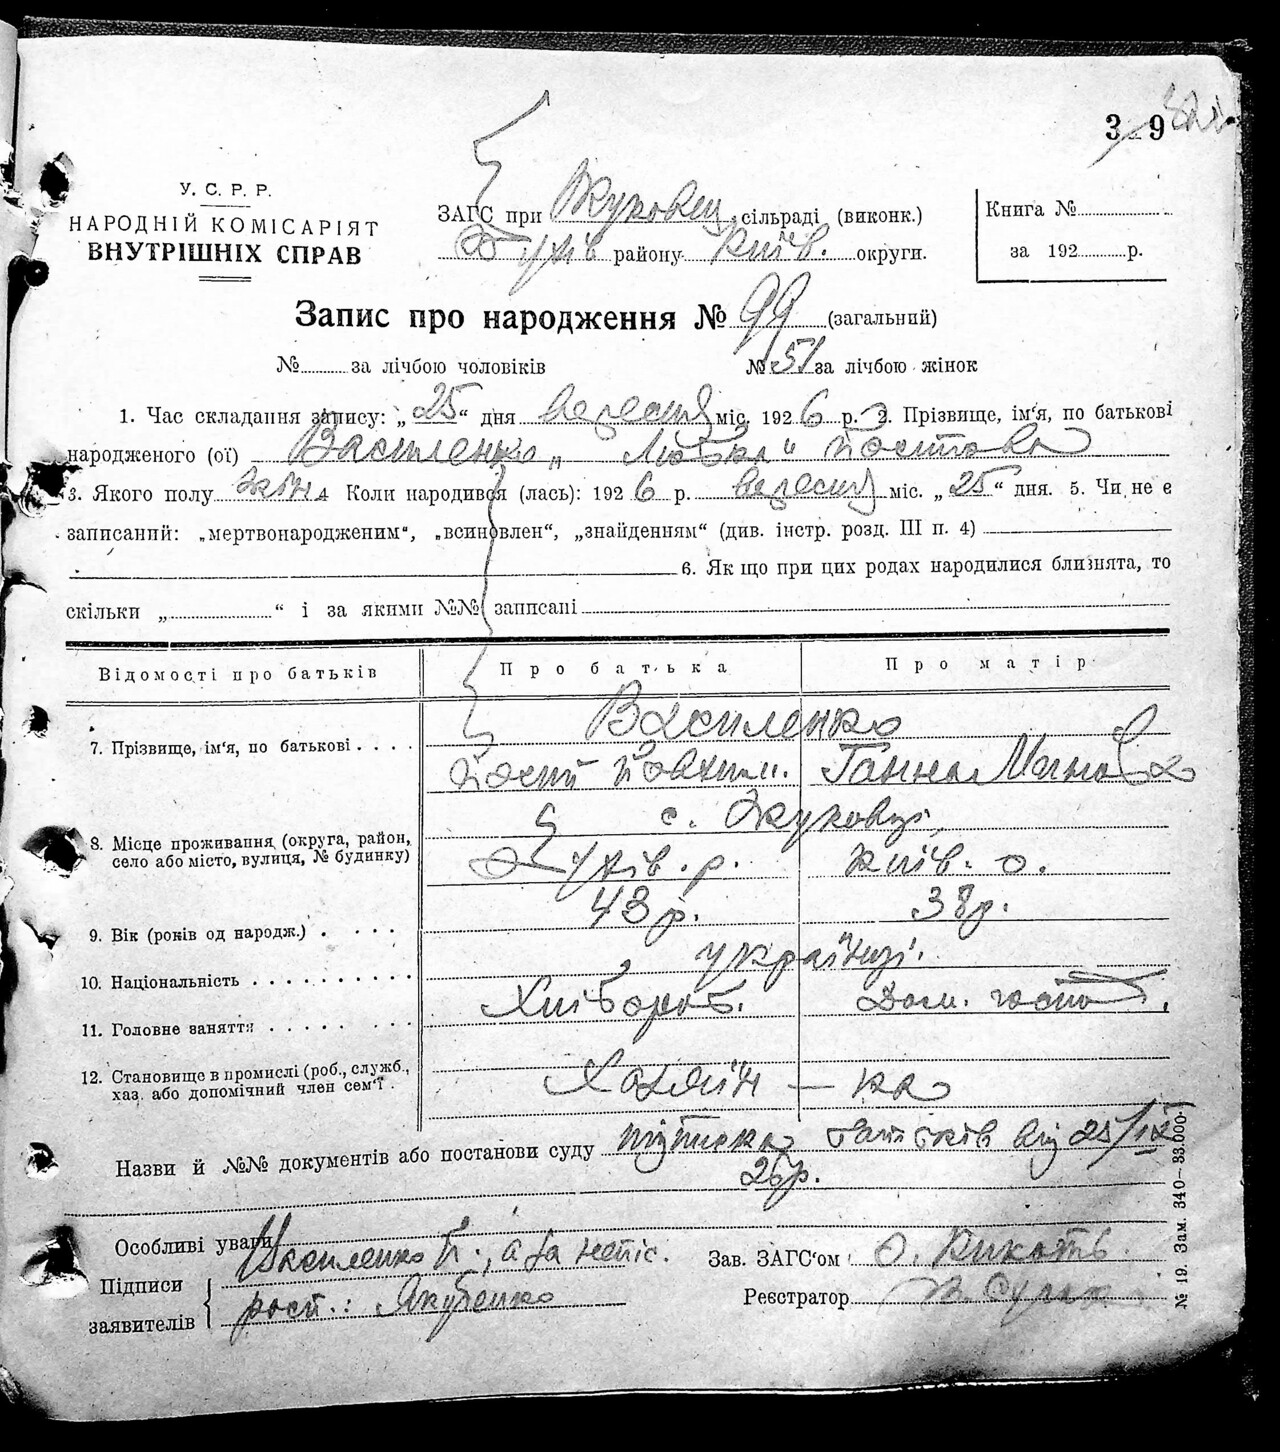 3 9
У. С. Р. Р.
НАРОДНІЙ КОМІСАРІЯТ
ВНУТРІШНІХ СПРАВ
ЗАГС при Жуковец. сільраді (виконк.)
району Київ. округи.
Книга №
за 192 р.
Запис про народження № 99 (загальний)
№ за лічбою чоловіків № 51 за лічбою жінок
1. Час складання запису: „25“ дня вересня міс. 1926 р. 2. Прізвище, ім'я, по батькові
народженого (ої) Василенко „Любка“
3. Якого полу жін. 4 Коли народився (лась): 1926 р. вересня міс. „25“ дня. 5. Чи не є
записаний: „мертвонародженим“, „всиновлен“, „знайденням“ (див. інстр. розд. III п. 4)
6. Як що при цих родах народилися близнята, то
скільки „ “ і за якими №№ записані
Відомості про батьків Про батька Про матір
Василенко
7. Прізвище, ім'я, по батькові
Йосип Йовхим. Ганна
с. Жуковці,
8. Місце проживання (округа, район,
село або місто, вулиця, № будинку)
р. Київ. о.
43 р. 38 р.
9. Вік (років од народж.)
українці.
10. Національність
Хлібороб. Дом. господ.
11. Головне заняття
12. Становище в промислі (роб., служб.,
хаз. або допомічний член сем'ї
Хазяїн — ка
Назви й №№ документів або постанови суду підписка батьків від 25/IX
26р.
Особливі уваги
Василенко Й., а за непис.
Зав. ЗАГС'ом
Підписи
заявителів
розп.: Якубенко
Реєстратор
№ 19. Зам. 340—33.000.